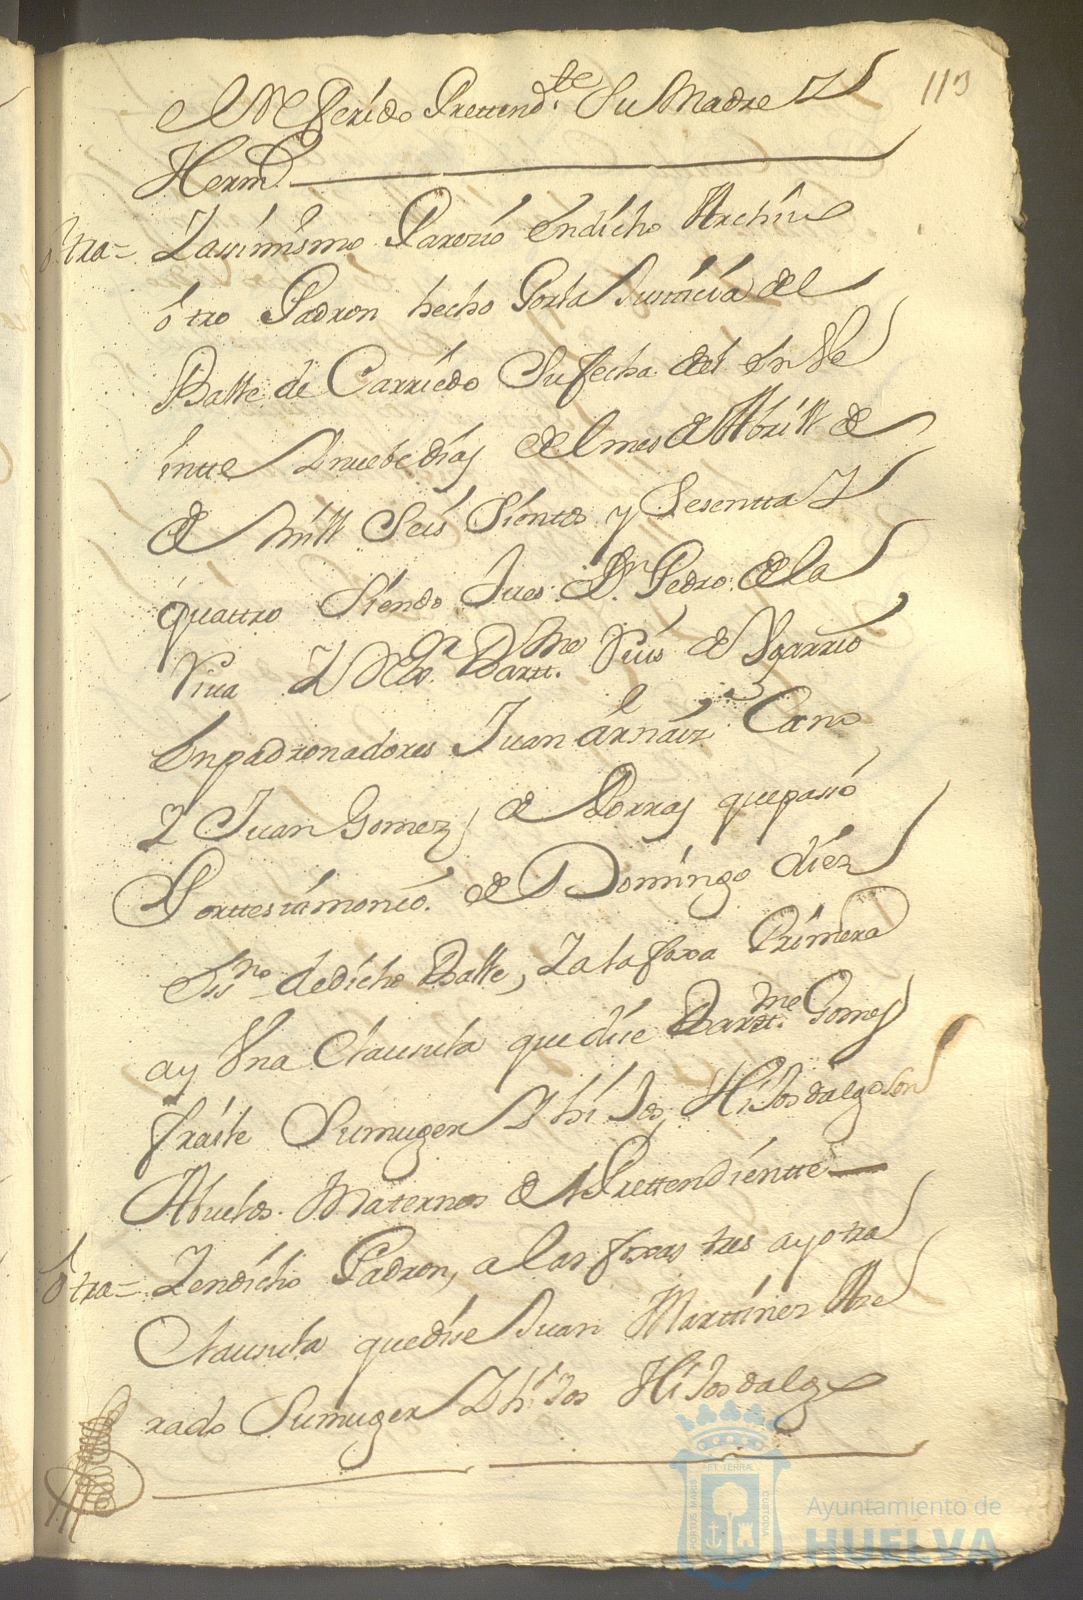 113
el Referido Prettend.te Su Madre Y
Herm.s
ótra = Y asimismo Parezio en dicho Archivo
ótro Padron hecho Por la Justicia del
Balle de Carriedo Su fecha del en Ve
intte Y nuebe dias del mes de Abrill de
de mill Seis Sientos y Sesentta Y
quattro Siendo Jues D.n Pedro de la
Riva Y Rex.or Bartt.me Ruis de Ygarrio
Enpadronadores Juan árnáiz Cano
Y Juan Gomez de Porras que pasó
Por ttestimonio de Domingo diez
Ess.no de dicho Balle, Y a la foxa Primera
ay Vna Clausula que dise Bartt.me Gomes
fraile Su muger Y hiJos HiJosdalgo Son
Abuelos Maternos del Prettendientte
ótra = Y en dicho Padron, a las foxas tres ay otra
Clausula que dise Juan Marttinez Alve
rado Su muger Y hiJos HiJosdalgo
PORTUS MARIS
ET TERRAE
CUSTODIA
Ayuntamiento de
HUELVA